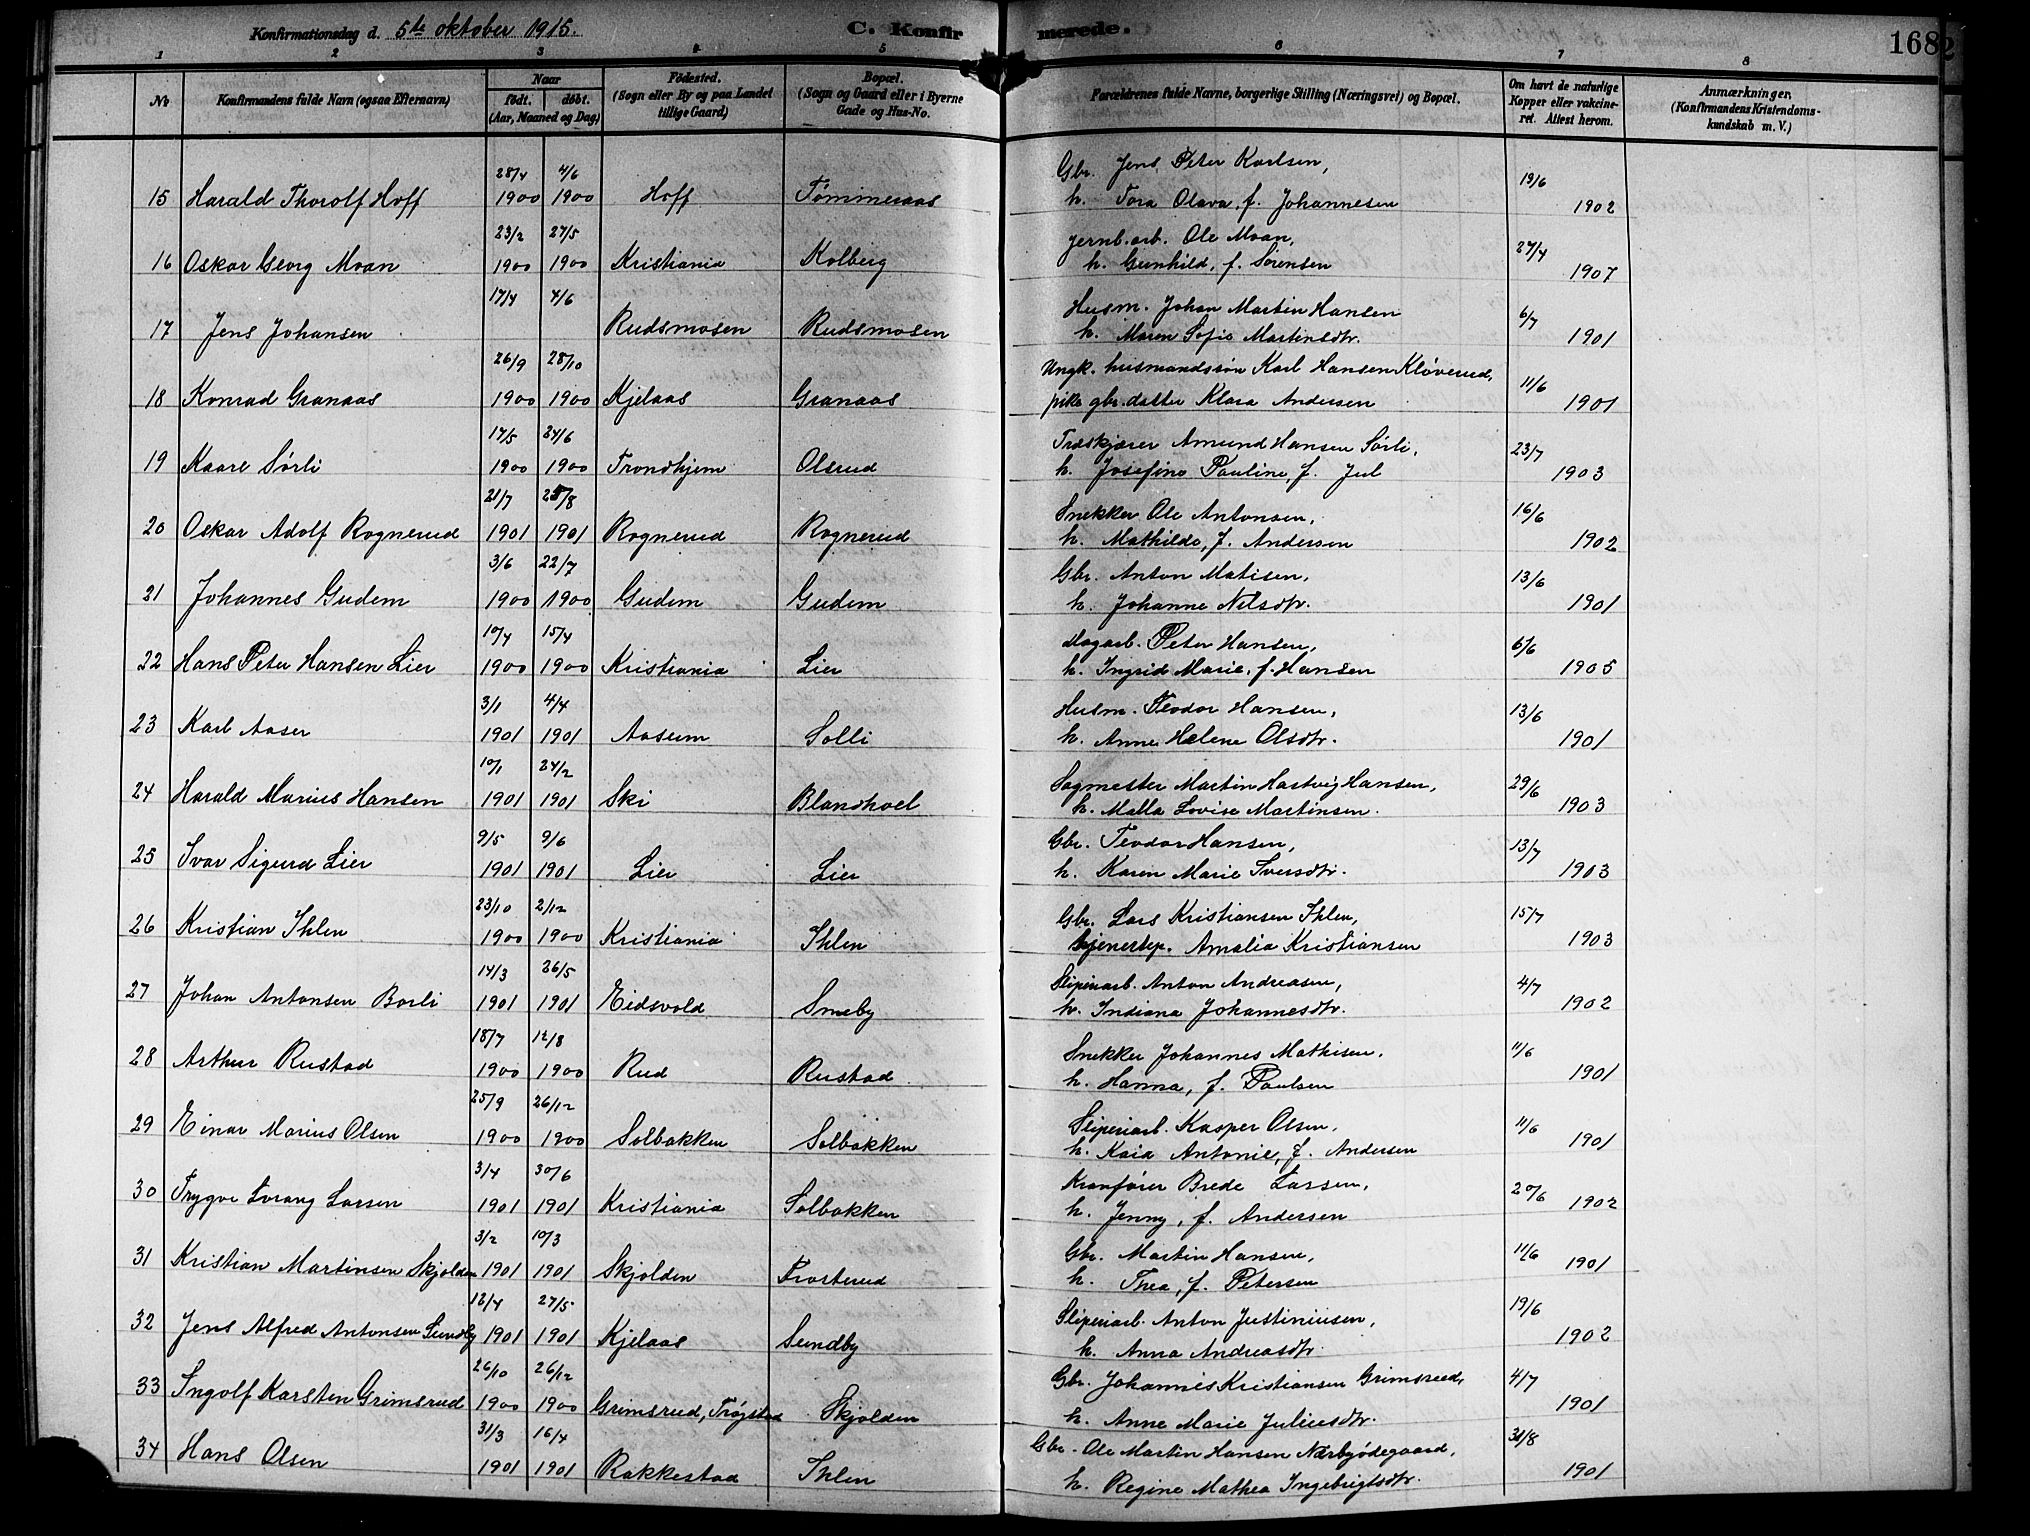 Konfirmationsdag d. 5te oktober 1915. C. Konfirmerede. 168
1 2 3 4 5 6 7 8
No Konfirmandens fulde Navn (ogsaa Efternavn) Naar født. døbt. (Aar, Maaned og Dag) Fødested. (Sogn eller By og paa Landet tillige Gaard) Bopæl. (Sogn og Gaard eller i Byerne Gade og Hus-No. Forældrenes fulde Navne, borgerlige Stilling (Næringsvei) og Bopæl. Om havt de naturlige Kopper eller vakcineret. Attest herom. Anmærkninger. (Konfirmandens Kristendomskundskab m. V.)
28/4 4/6 Gbr. Jens Peter Karlsen, 19/6
15 Harald Thorolf Hoff 1900 1900 Hoff Tømmeraas h. Tora Olava, f. Johannesen 1902
23/2 27/5 Jernb.arb. Ole Moan, 27/4
16 Oskar Georg Moan 1900 1900 Kristiania Kolberg h. Gunhild, f. Sørensen 1907
17/4 4/6 Husm. Johan Martin Hansen 6/7
17 Jens Johansen Rudsmosen Rudsmosen h. Maren Sofie Martinsdtr. 1901
26/9 28/10 Ungk. husmandssøn Karl Hansen Kløverud, 11/6
18 Konrad Granaas 1900 1900 Kjelaas Granaas pike gbr.datter Klara Andersen 1901
17/5 24/6 Træskjærer Amund Hansen Sørli, 23/7
19 Kaare Sørli 1900 1900 Trondhjem Olsrud h. Josefine Pauline, f. Jul 1903
21/7 25/8 Snekker Ole Antonsen, 16/6
20 Oskar Adolf Rognerud 1901 1901 Rognerud Rognerud h. Mathilde, f. Andersen 1902
3/6 22/7 Gbr. Anton Matisen, 13/6
21 Johannes Gudem 1900 1900 Gudem Gudem h. Johanne Nilsdtr. 1901
10/4 15/4 Dagarb. Peter Hansen, 6/6
22 Hans Peter Hansen Lier 1900 1900 Kristiania Lier h. Ingrid Marie, f. Hansen 1905
3/1 4/4 Husm. Teodor Hansen, 13/6
23 Karl Aaser 1901 1901 Aaserm Solli h. Anne Helene Olsdtr. 1901
10/1 24/2 Sagmester Martin Hartvig Hansen, 29/6
24 Harald Marius Hansen 1901 1901 Ski Blandhoel h. Malla Lovise Martinsen. 1903
9/5 9/6 Gbr. Teodor Hansen, 13/7
25 Ivar Sigurd Lier 1901 1901 Lier Lier h. Karen Marie Iversdtr. 1903
23/10 2/12 Gbr. Lars Kristiansen Ihlen, 15/7
26 Kristian Ihlen 1900 1900 Kristiania Ihlen tjenertep. Amalia Kristiansen 1903
14/3 26/5 Sliperiarb. Anton Andreasen, 4/7
27 Johan Antonsen Borli 1901 1901 Eidsvold Smeby h. Indiana Johannesdtr. 1902
18/7 12/8 Snekker Johannes Mathisen, 11/6
28 Arthur Rustad 1900 1900 Rud Rustad h. Hanna, f. Paulsen 1901
25/9 26/12 Sliperiarb. Kasper Olsen, 11/6
29 Einar Marius Olsen 1900 1900 Solbakken Solbakken h. Kaia Antonie, f. Andersen 1901
3/4 30/6 Kranfører Brede Larsen, 20/6
30 Trygve Evrang Larsen 1901 1901 Kristiania Solbakken h. Jenny, f. Andersen 1902
3/2 10/3 Gbr. Martin Hansen, 11/6
31 Kristian Martinsen Skjolden 1901 1901 Skjolden Frosterud h. Thea, f. Petersen 1901
12/4 27/5 Sliperiarb. Anton Justiniusen, 19/6
32 Jens Alfred Antonsen Sundby 1901 1901 Kjelaas Sundby h. Anna Andreasdtr. 1902
26/10 26/12 Gbr. Johannes Kristiansen Grimsrud, 4/7
33 Ingolf Karsten Grimsrud 1900 1900 Grimsrud, Trøgstad Skjolden h. Anne Marie Juliusdtr. 1901
31/3 16/4 Gbr. Ole Martin Hansen Nærbyødegaard, 31/8
34 Hans Olsen 1901 1901 Rakkestad Ihlen h. Regine Mathea Ingebrigtsdtr. 1901